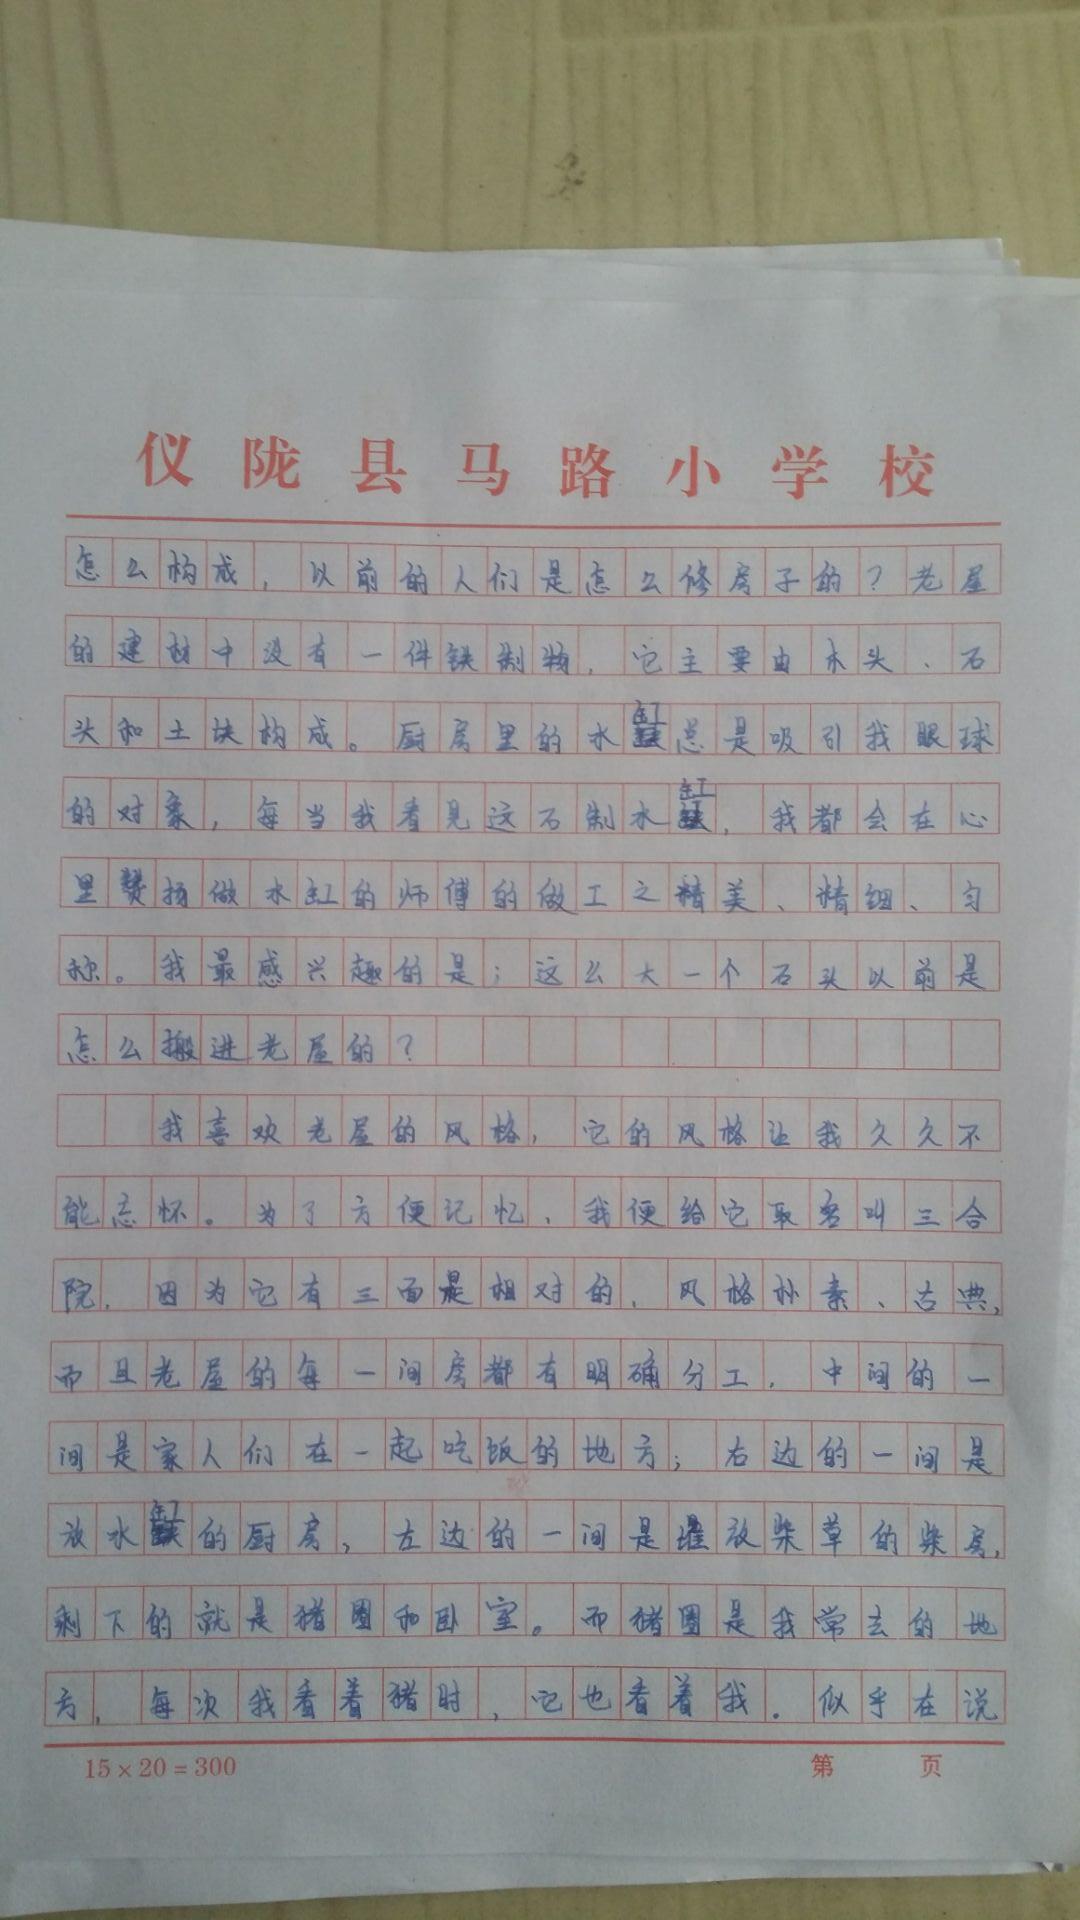 仪陇县马路小学校
怎么构成，以前的人们是怎么修房子的？老屋
的建材中没有一件铁制物，它主要由木头、石
头和土块构成。厨房里的水缸总是吸引我眼球
的对象，每当我看见这石制水缸，我都会在心
里赞扬做水缸的师傅的做工之精美、精细、匀
称。我最感兴趣的是；这么大一个石头以前是
怎么搬进老屋的？
我喜欢老屋的风格，它的风格让我久久不
能忘怀。为了方便记忆，我便给它取名叫三合
院，因为它有三面是相对的，风格朴素、古典，
而且老屋的每一间房都有明确分工，中间的一
间是家人们在一起吃饭的地方；右边的一间是
放水缸的厨房，左边的一间是堆放柴草的柴房，
剩下的就是猪圈和卧室。而猪圈是我常去的地
方，每次我看着猪时，它也看着我。似乎在说
15×20=300 第 页